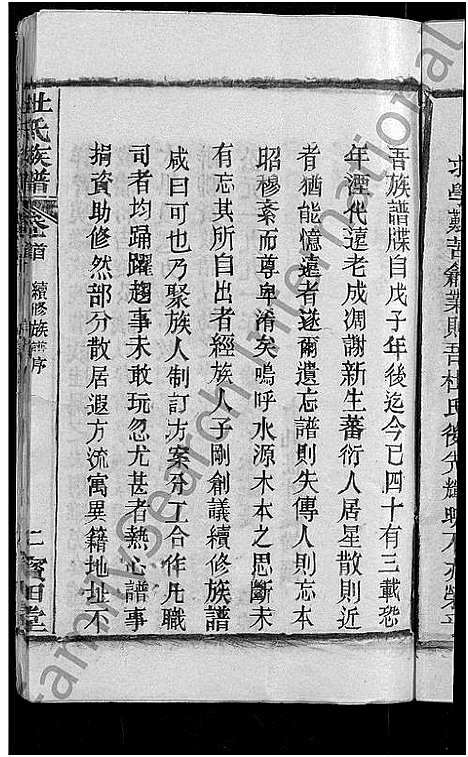 求學艱苦創業則吾杜氏後先輝映不亦榮乎
吾族譜牒自戊子年後迄今已四十有三載恐
年湮代遠老成凋謝新生蕃衍人居星散則近
者猶能憶遠者遂爾遺忘譜則失傳人則忘本
昭穆紊而尊卑淆矣嗚呼水源木本之思斷未
有忘其所自出者經族人子剛創議續修族譜
咸曰可也乃聚族人制訂方案分工合作凡職
司者均踊躍趨事未敢玩忽尤甚者熱心譜事
捐資助修然部分散居遐方流寓異籍地址不
杜氏族譜 卷首 續修族譜序 二 寳田堂
FamilySearch International